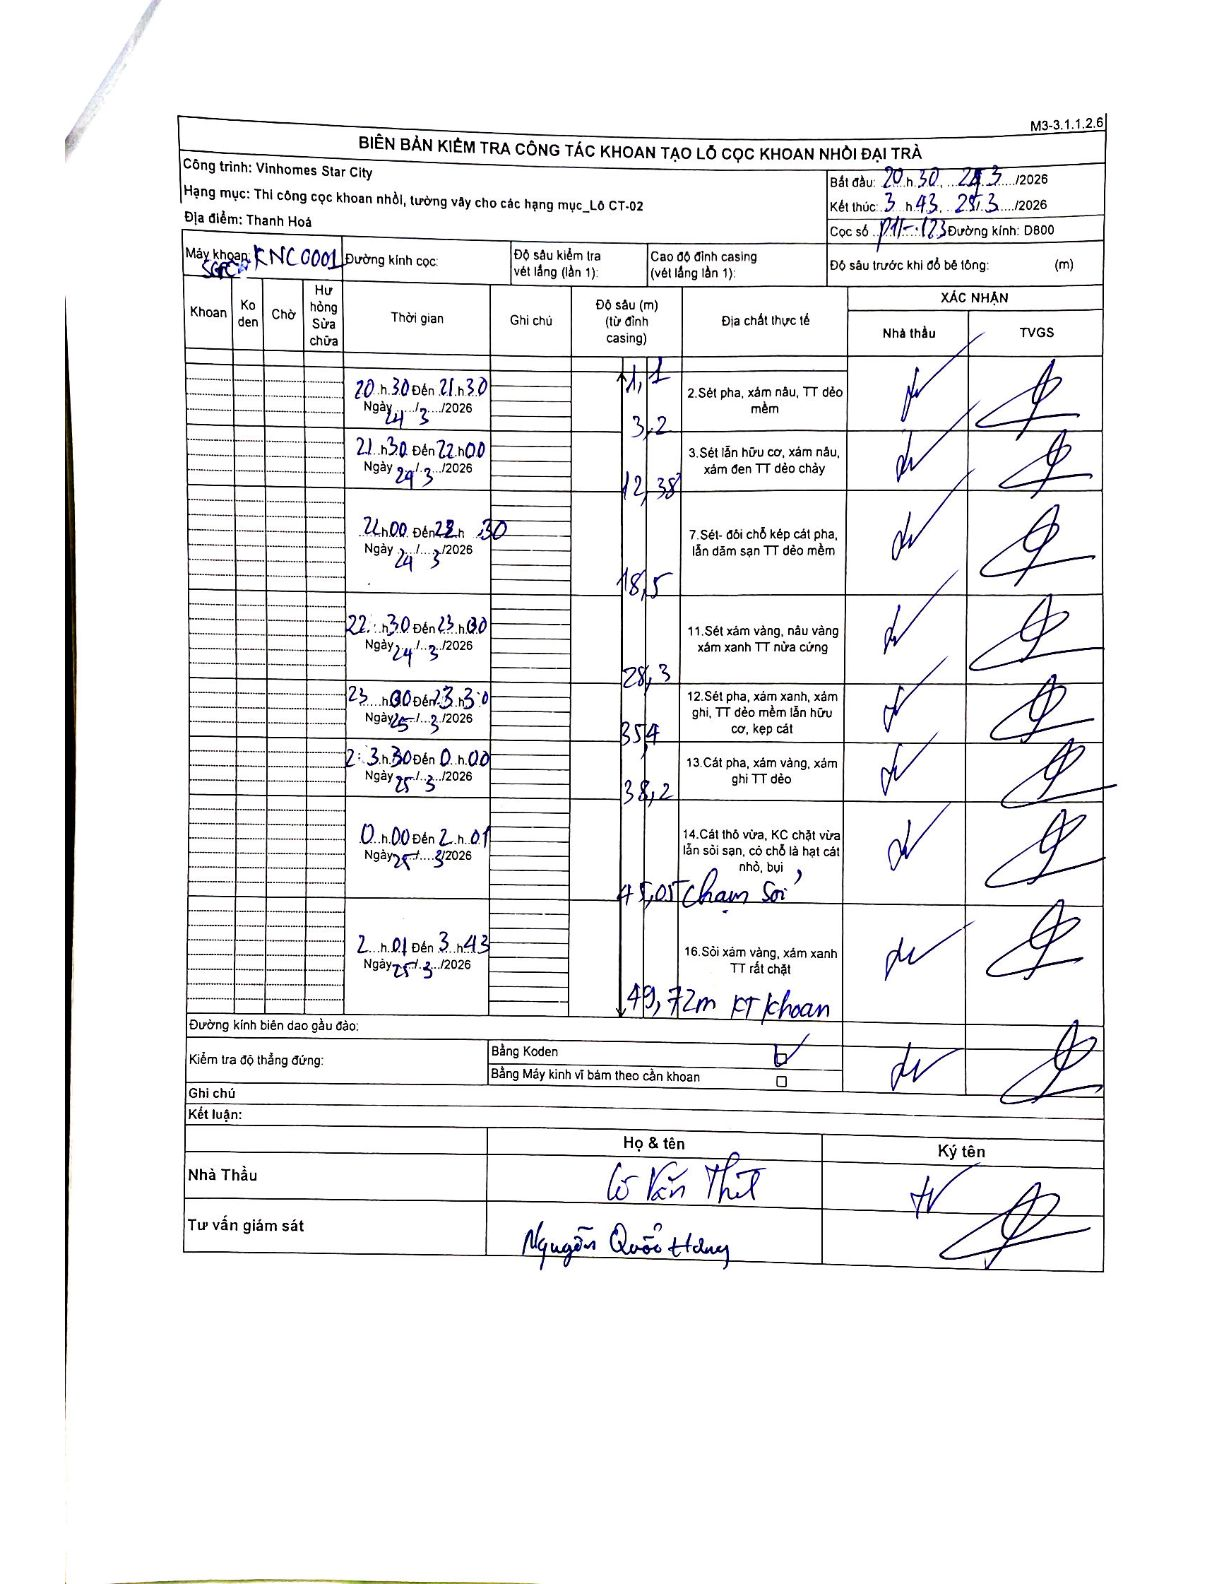 M3-3.1.1.2.6
BIÊN BẢN KIỂM TRA CÔNG TÁC KHOAN TẠO LỖ CỌC KHOAN NHỒI ĐẠI TRÀ
Công trình: Vinhomes Star City
Hạng mục: Thi công cọc khoan nhồi, tường vây cho các hạng mục_Lô CT-02
Địa điểm: Thanh Hoá
Bắt đầu: 20 h 30, 24/3/2026
Kết thúc: 3 h 43, 25/3/2026
Cọc số P11-123 Đường kính: D800
Máy khoan: KNC0001
Đường kính cọc:
Độ sâu kiểm tra vét lắng (lần 1):
Cao độ đỉnh casing (vét lắng lần 1):
Độ sâu trước khi đổ bê tông: (m)
Khoan Ko den Chờ Hư hỏng Sửa chữa Thời gian Ghi chú Độ sâu (m) (từ đỉnh casing) Địa chất thực tế XÁC NHẬN
Nhà thầu TVGS
1,1
20 h 30 Đến 21 h 30
Ngày 24/3/2026
2.Sét pha, xám nâu, TT dẻo mềm
3,2
21 h 30 Đến 22 h 00
Ngày 24/3/2026
3.Sét lẫn hữu cơ, xám nâu, xám đen TT dẻo chảy
12,38
22 h 00 Đến 22 h 30
Ngày 24/3/2026
7.Sét- đôi chỗ kép cát pha, lẫn dăm sạn TT dẻo mềm
18,5
22 h 30 Đến 23 h 00
Ngày 24/3/2026
11.Sét xám vàng, nâu vàng xám xanh TT nửa cứng
28,3
23 h 00 Đến 23 h 30
Ngày 25/3/2026
12.Sét pha, xám xanh, xám ghi, TT dẻo mềm lẫn hữu cơ, kẹp cát
35,4
23 h 30 Đến 0 h 00
Ngày 25/3/2026
13.Cát pha, xám vàng, xám ghi TT dẻo
38,2
0 h 00 Đến 2 h 01
Ngày 25/3/2026
14.Cát thô vừa, KC chặt vừa lẫn sỏi sạn, có chỗ là hạt cát nhỏ, bụi
45,05 Chạm Sỏi
2 h 01 Đến 3 h 43
Ngày 25/3/2026
16.Sỏi xám vàng, xám xanh TT rất chặt
49,72m KT khoan
Đường kính biên dao gầu đào:
Kiểm tra độ thẳng đứng:
Bằng Koden
Bằng Máy kinh vĩ bám theo cần khoan
Ghi chú
Kết luận:
Họ & tên Ký tên
Nhà Thầu
Tư vấn giám sát Nguyễn Quốc Hưng